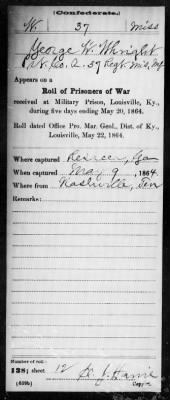 (Confederate.)
W 37 Miss
George W. Wright
Pvt. Co. A. 37 Regt. Miss. Inf.
Appears on a
Roll of Prisoners of War
received at Military Prison, Louisville, Ky.,
during five days ending May 20, 1864.
Roll dated Office Pro. Mar. Genl., Dist. of Ky.,
Louisville, May 22, 1864.
Where captured Resacca, Ga
When captured May 9, 1864.
Where from Nashville, Ten
Remarks:
Number of roll:
138; sheet 12
Harris
(639b) Copyist.